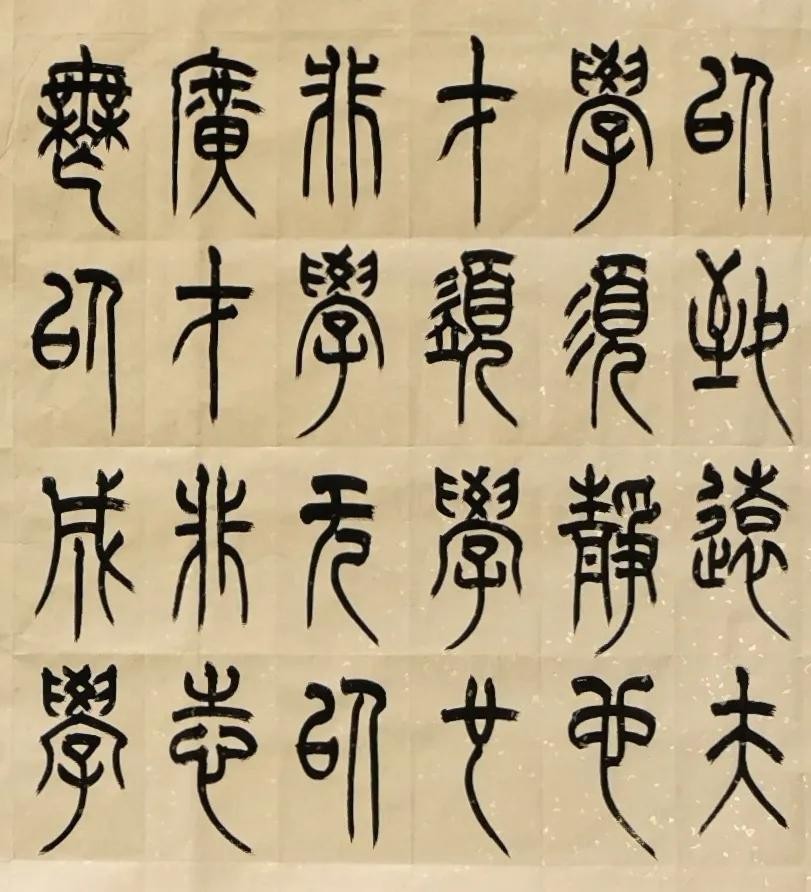 以致遠夫
學須靜也
才須學也
非學无以
廣才非志
無以成學